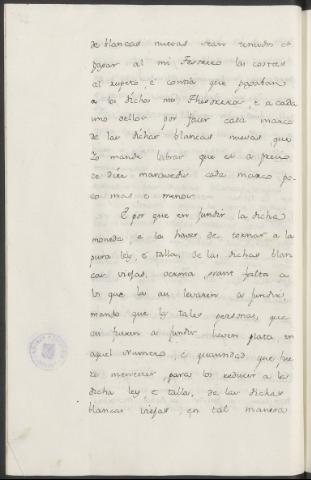 de blancas nuevas sean tenudos de
pagar al mi Thesorero las costas
al respeto, é contia que pagaban
a los dichos mis Thesoreros, é a cada
uno dellos por facer cada marco
de las dichas blancas nuevas que
Yo mandé labrar que es a precio
de diez maravedis cada marco po-
co mas, o menos.
E por que en fundir la dicha
moneda, e la haver de tornar a la
pura ley, é talla, de las dichas blan
cas viejas, verná grant falta a
los que la asi levaren a fundir,
mando que los tales personas, que
asi fueren a fundir lieven plata en
aquel numero, é quantidad que fue
re menester, para los reducir a la
dicha ley, é talla, de las dichas
blancas viejas, en tal manera